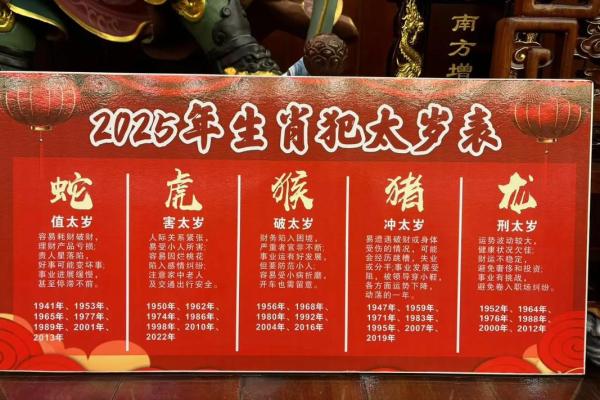 南方增
2025年生肖犯太岁表
蛇
值太岁
容易耗财破财，
理财产品亏损；
贵人星落陷，
好事可能变坏事；
事业进展缓慢，
甚至停滞不前。
1941年、1953年、
1965年、1977年、
1989年、2001年、
2013年
虎
害太岁
人际关系紧张，
易受小人所害；
容易因烂桃花
陷入感情纠纷；
注意家中老人
及交通出行安全。
1950年、1962年、
1974年、1986年、
1998年、2010年、
2022年
猴
破太岁
财务陷入困境，
严重者官非不断；
事业运有好发展，
但要防范小人；
容易受小病折磨，
开车也需留意。
1956年、1968年、
1980年、1992年、
2004年、2016年
猪
冲太岁
易遭遇破财或身体
受伤的情况，可能
会经历跳槽、失业
或分手；事业发展受
阻，被领导穿小鞋，
各方面运势下降，
动荡的一年。
1947年、1959年、
1971年、1983年、
1995年、2007年、
2019年
龙
刑太岁
运势波动较大，
健康状况欠佳；
财运不稳定，
避免奢侈和投资；
事业有挑战，
避免卷入职场纠纷。
1952年、1964年、
1976年、1988年、
2000年、2012年